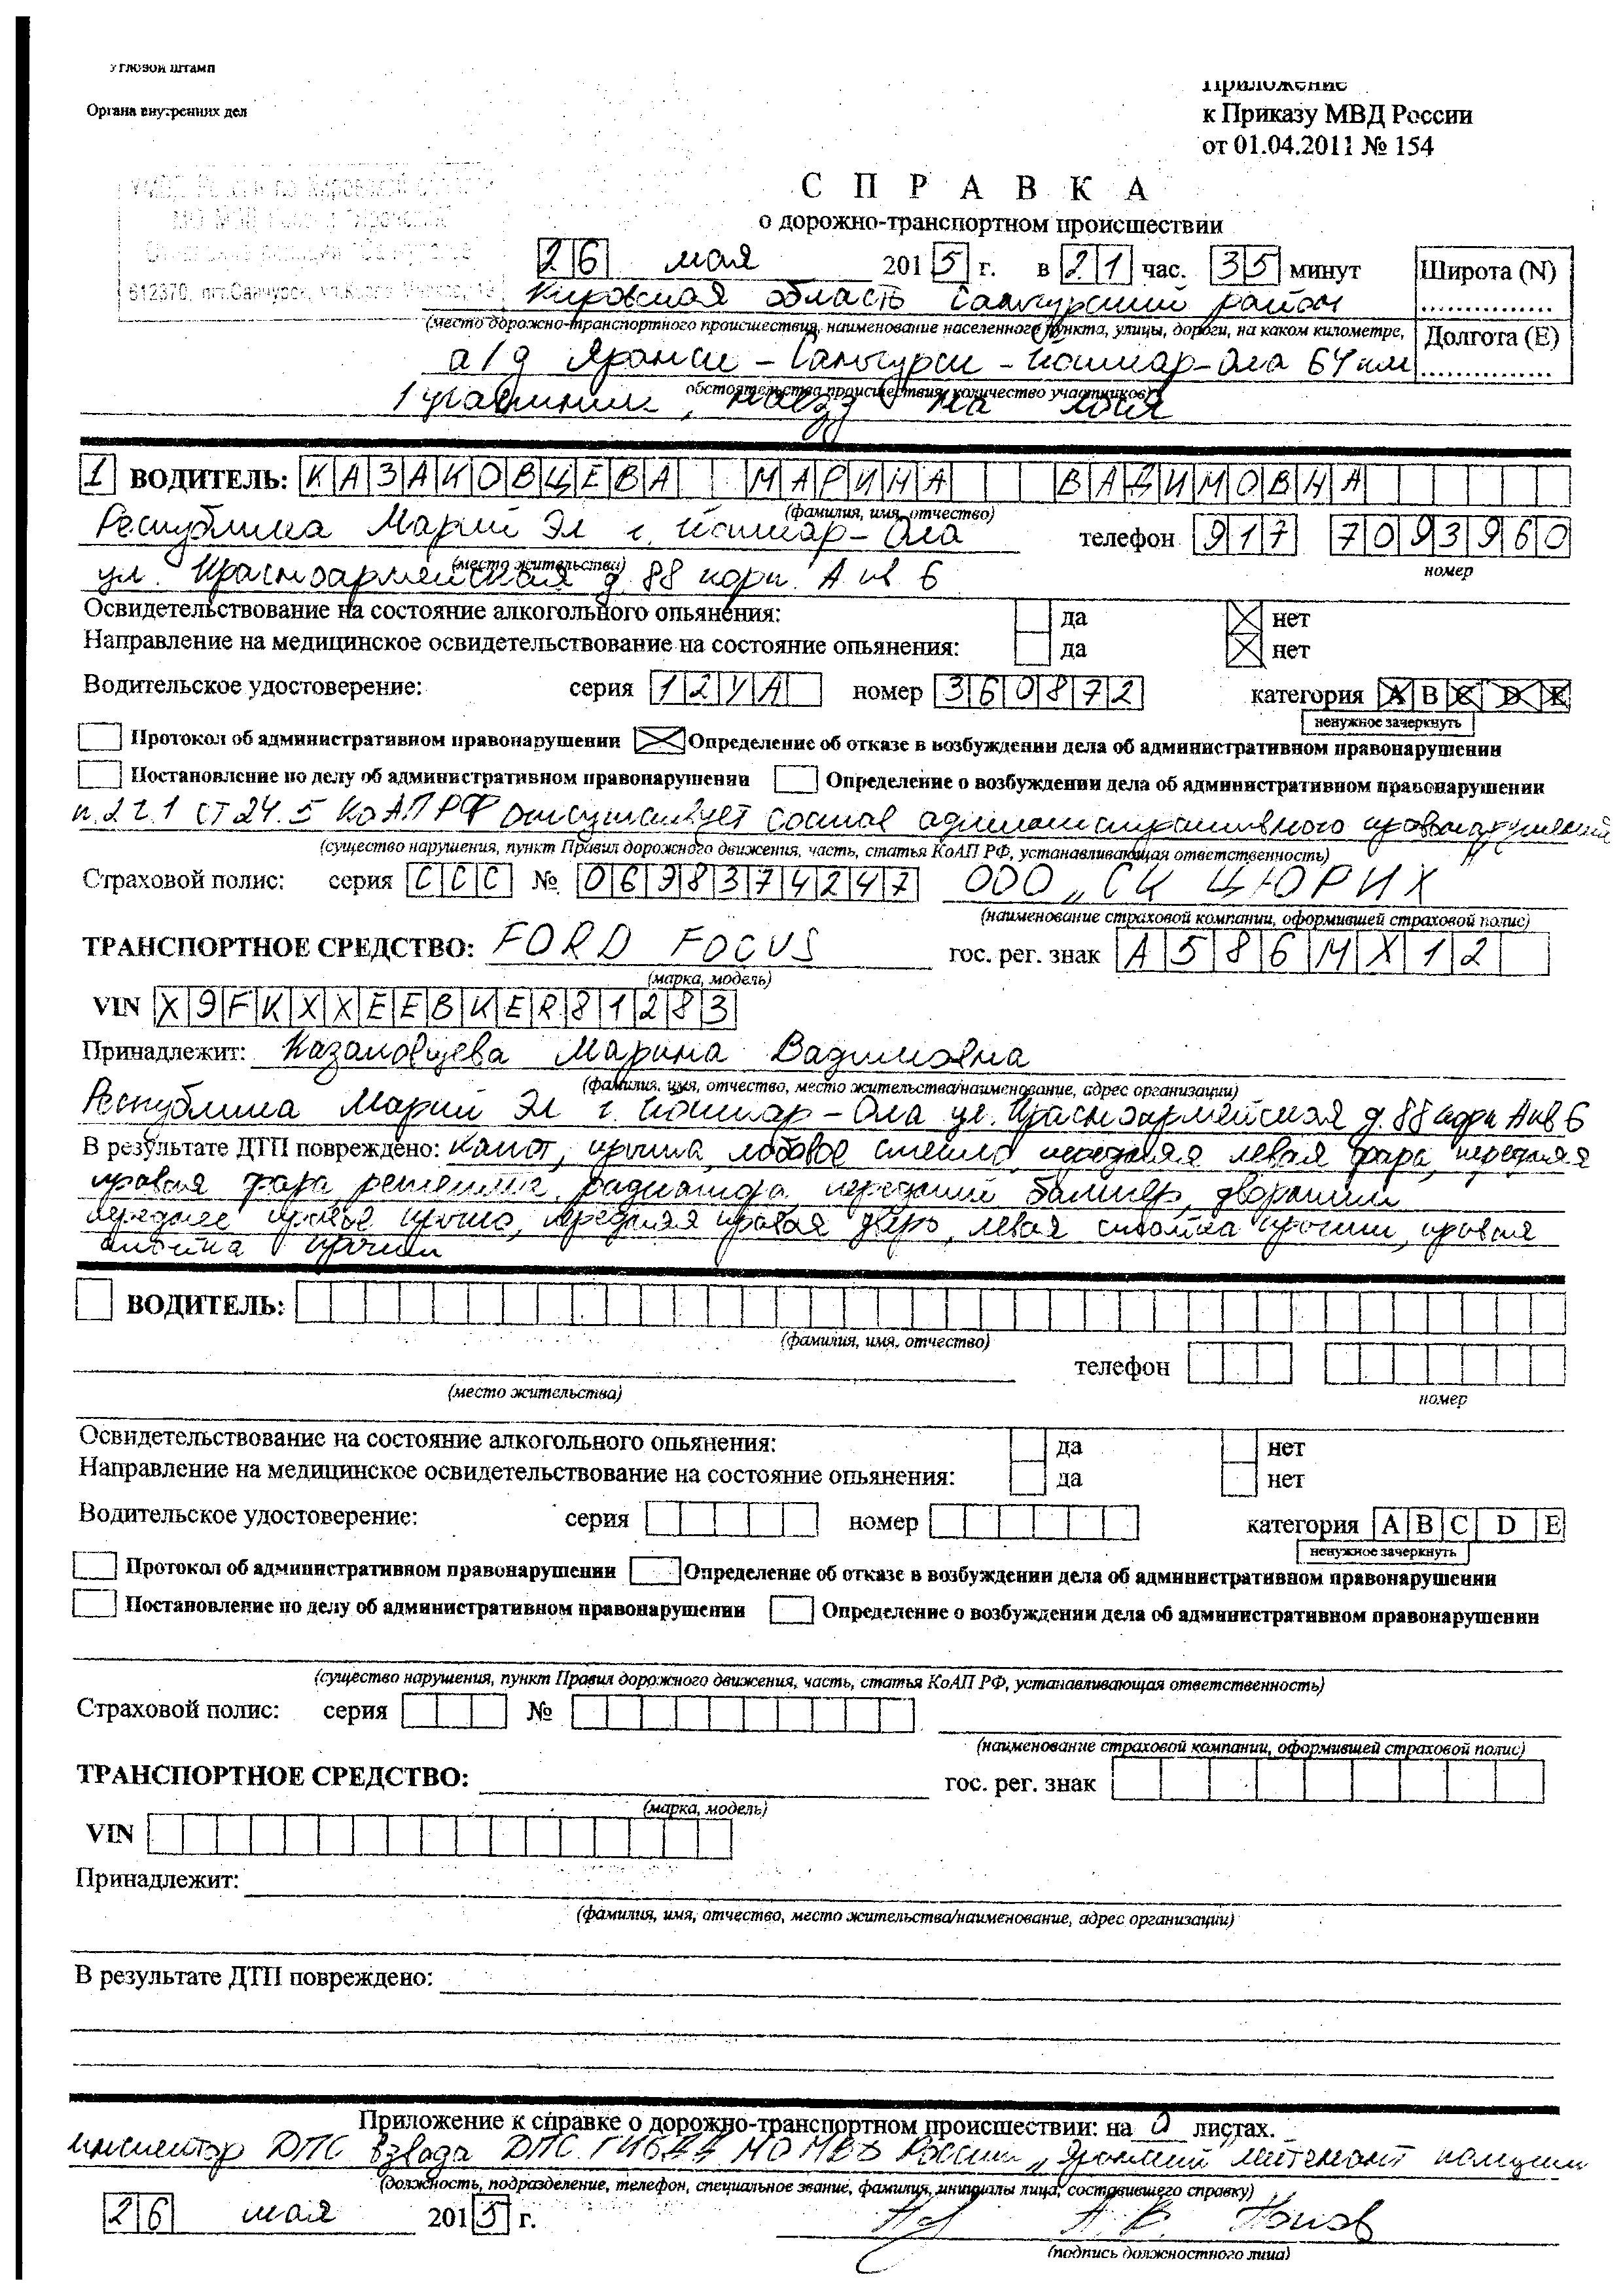 Угловой штамп
Органа внутренних дел
Приложение
к Приказу МВД России
от 01.04.2011 № 154
612370, пгт.Санчурск,
С П Р А В К А
о дорожно-транспортном происшествии
26 мая 2015 г. в 21 час. 35 минут
Широта (N)
Кировская область Санчурский район
(место дорожно-транспортного происшествия, наименование населенного пункта, улицы, дороги, на каком километре,
Долгота (E)
а/д Яранск - Санчурск - Йошкар-Ола 64 км
обстоятельства происшествия, количество участников)
1 участник, наезд на лося
1 ВОДИТЕЛЬ: КАЗАКОВЦЕВА МАРИНА ВАДИМОВНА
(фамилия, имя, отчество)
Республика Марий Эл г. Йошкар-Ола телефон 917 7093960
(место жительства) номер
ул. Красноармейская д. 88 корп. А кв 6
Освидетельствование на состояние алкогольного опьянения: да нет
Направление на медицинское освидетельствование на состояние опьянения: да нет
Водительское удостоверение: серия 12УА номер 360872 категория A B C D E
ненужное зачеркнуть
Протокол об административном правонарушении Определение об отказе в возбуждении дела об административном правонарушении
Постановление по делу об административном правонарушении Определение о возбуждении дела об административном правонарушении
п.2 ч.1 ст 24.5 КоАП РФ отсутствует состав административного правонарушения
(существо нарушения, пункт Правил дорожного движения, часть, статья КоАП РФ, устанавливающая ответственность)
Страховой полис: серия ССС № 0698374247 ООО „СК ЦЮРИХ
(наименование страховой компании, оформившей страховой полис)
ТРАНСПОРТНОЕ СРЕДСТВО: FORD FOCUS гос. рег. знак А586МХ12
(марка, модель)
VIN X9FKXXEEBKER81283
Принадлежит: Казаковцева Марина Вадимовна
(фамилия, имя, отчество, место жительства/наименование, адрес организации)
Республика Марий Эл г. Йошкар-Ола ул. Красноармейская д. 88 корп А кв 6
В результате ДТП повреждено: капот, крыша, лобовое стекло, передняя левая фара, передняя
правая фара, решетка радиатора, передний бампер, дворники
переднее правое крыло, передняя правая дверь, левая стойка крыши, правая
стойка крыши
ВОДИТЕЛЬ:
(фамилия, имя, отчество)
телефон
(место жительства) номер
Освидетельствование на состояние алкогольного опьянения: да нет
Направление на медицинское освидетельствование на состояние опьянения: да нет
Водительское удостоверение: серия номер категория A B C D E
ненужное зачеркнуть
Протокол об административном правонарушении Определение об отказе в возбуждении дела об административном правонарушении
Постановление по делу об административном правонарушении Определение о возбуждении дела об административном правонарушении
(существо нарушения, пункт Правил дорожного движения, часть, статья КоАП РФ, устанавливающая ответственность)
Страховой полис: серия №
(наименование страховой компании, оформившей страховой полис)
ТРАНСПОРТНОЕ СРЕДСТВО: гос. рег. знак
(марка, модель)
VIN
Принадлежит:
(фамилия, имя, отчество, место жительства/наименование, адрес организации)
В результате ДТП повреждено:
Приложение к справке о дорожно-транспортном происшествии: на 0 листах.
инспектор ДПС взвода ДПС ГИБДД МО МВД России „Яранский" лейтенант полиции
(должность, подразделение, телефон, специальное звание, фамилия, инициалы лица, составившего справку)
26 мая 2015 г. А. В.
(подпись должностного лица)